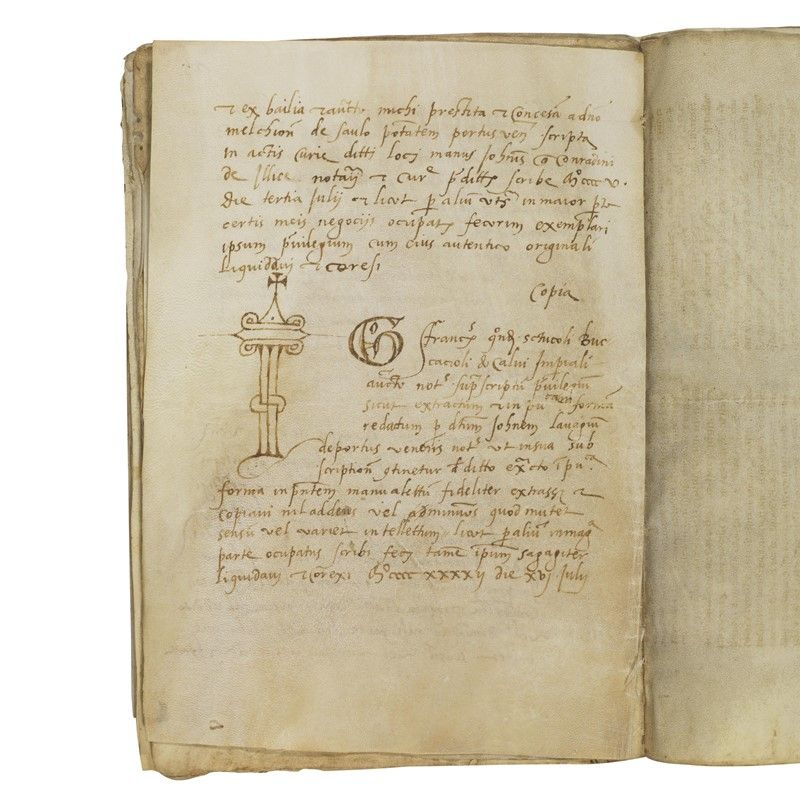 et ex bailia et aucto. michi prestita et concesa a dno
melchion de saulo potatem portus ven scripta
in actis curie ditti locj manus Johnis q Conradini
de Illice notarij et cur pditte scribe Mo cccc v.
die tertia Julij et licet p aliu in maior pte
certis meis negocijs ocupatus fecerim exemplari
ipsum privilegium cum eius autentico originali
liquidavi et coresi
Copia
EGo Franc qnd Buc
cacioli de Calvi Impiali
aucto not supscriptu privilegiu
sicut extractum et in pu formā
redatum p dtum Johnem
de portus veneris not ut in sua sub
scription gtinetur ditto
forma in pntem manualettu fideliter extrassi et
copiavi nil addens vel adminuens quod mutet
sensu vel variet intellettum licet p aliu in mag
parte ocupatus scribi feci tame ipum sagagiter
liquidavi et corexi Mo cccc xxxxij die xvj Julij